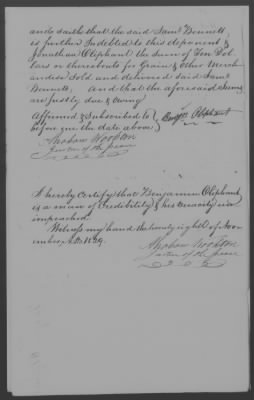 and saith that the said Saml Bennett,
is further Indebted to this deponent &
Jonathan Oliphant the Sum of Ten Dol
lars or thereabouts for Grain & other Merch
andise Sold and delivered said Saml
Bennett, And that the aforesaid Sums
are justly due & owing
Affirmed & Subscribed to
before me the date above
Benjn Oliphant
Abraham Wooston
Justice of the peace
I hereby certify that Benjamin Oliphant
is a man of Credibility & his veracity un
impeached.
Witness my hand the twenty eighth of Nov
ember A.D. 1829.
Justice of the peace